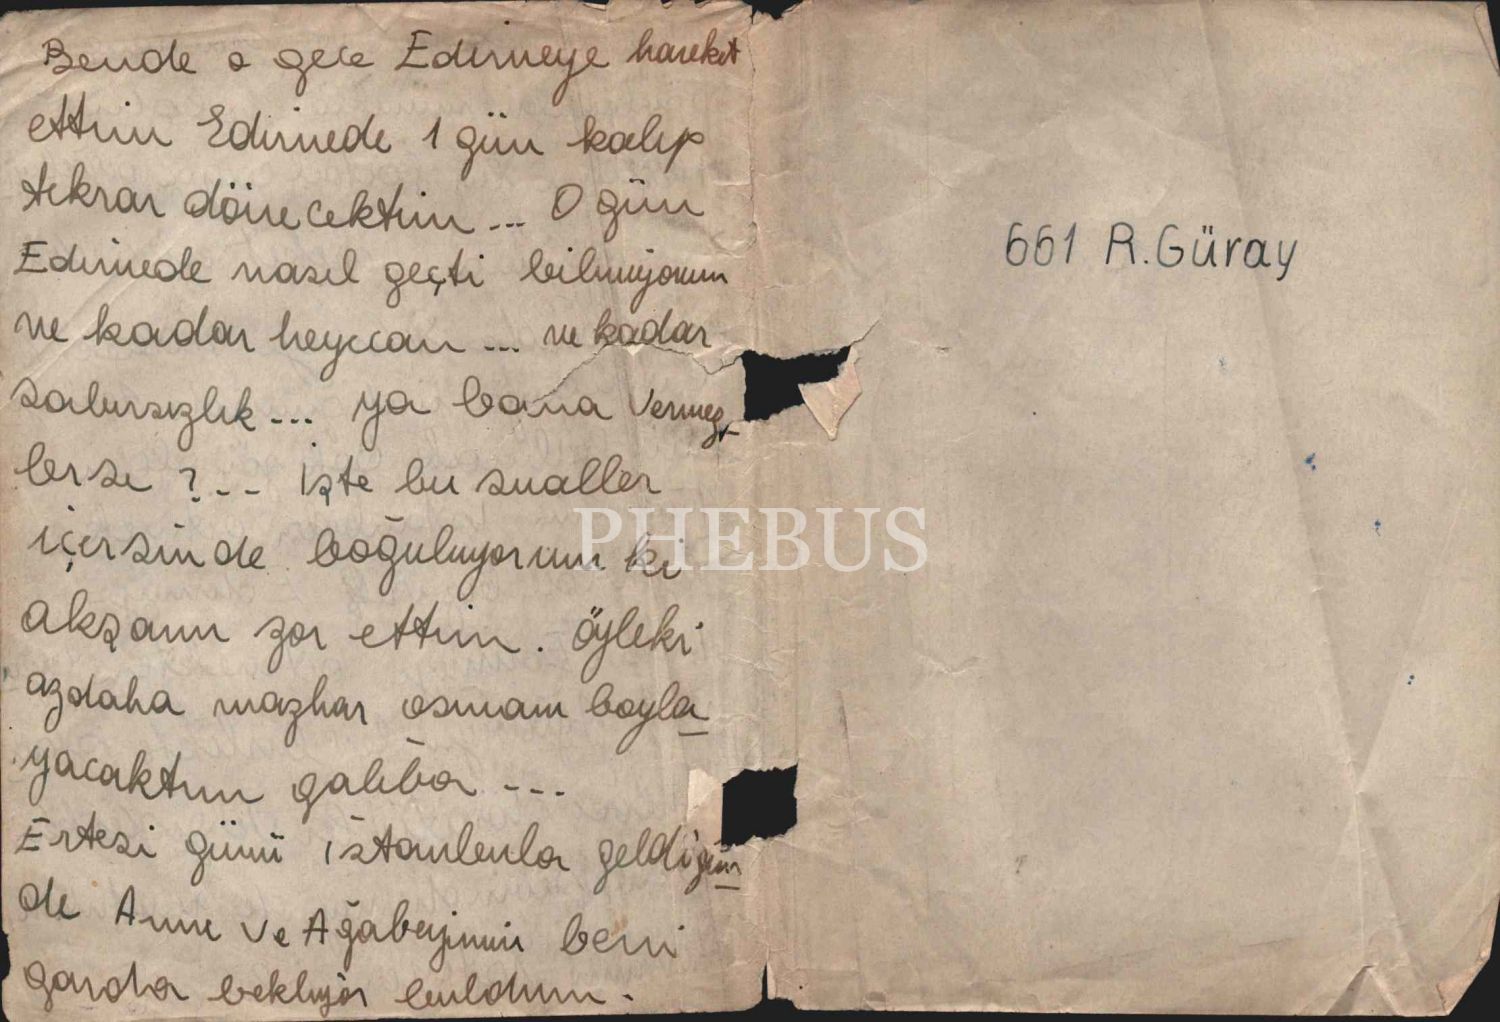 Bende o gece Edirneye hareket
ettim Edirnede 1 gün kalıp
tekrar dönecektim... O gün
Edirnede nasıl geçti bilmiyorum
ne kadar heyecan... ne kadar
sabırsızlık... ya bana vermez-
lerse ?... işte bu sualler
içersinde boğuluyorum ki
akşamı zor ettim. öyleki
azdaha mazhar osmanı boyla-
yacaktım galiba ---
Ertesi günü istanbula geldiğim-
de Anne ve Ağabeyimin beni
garda bekliyor buldum.
661 R.Güray
PHEBUS